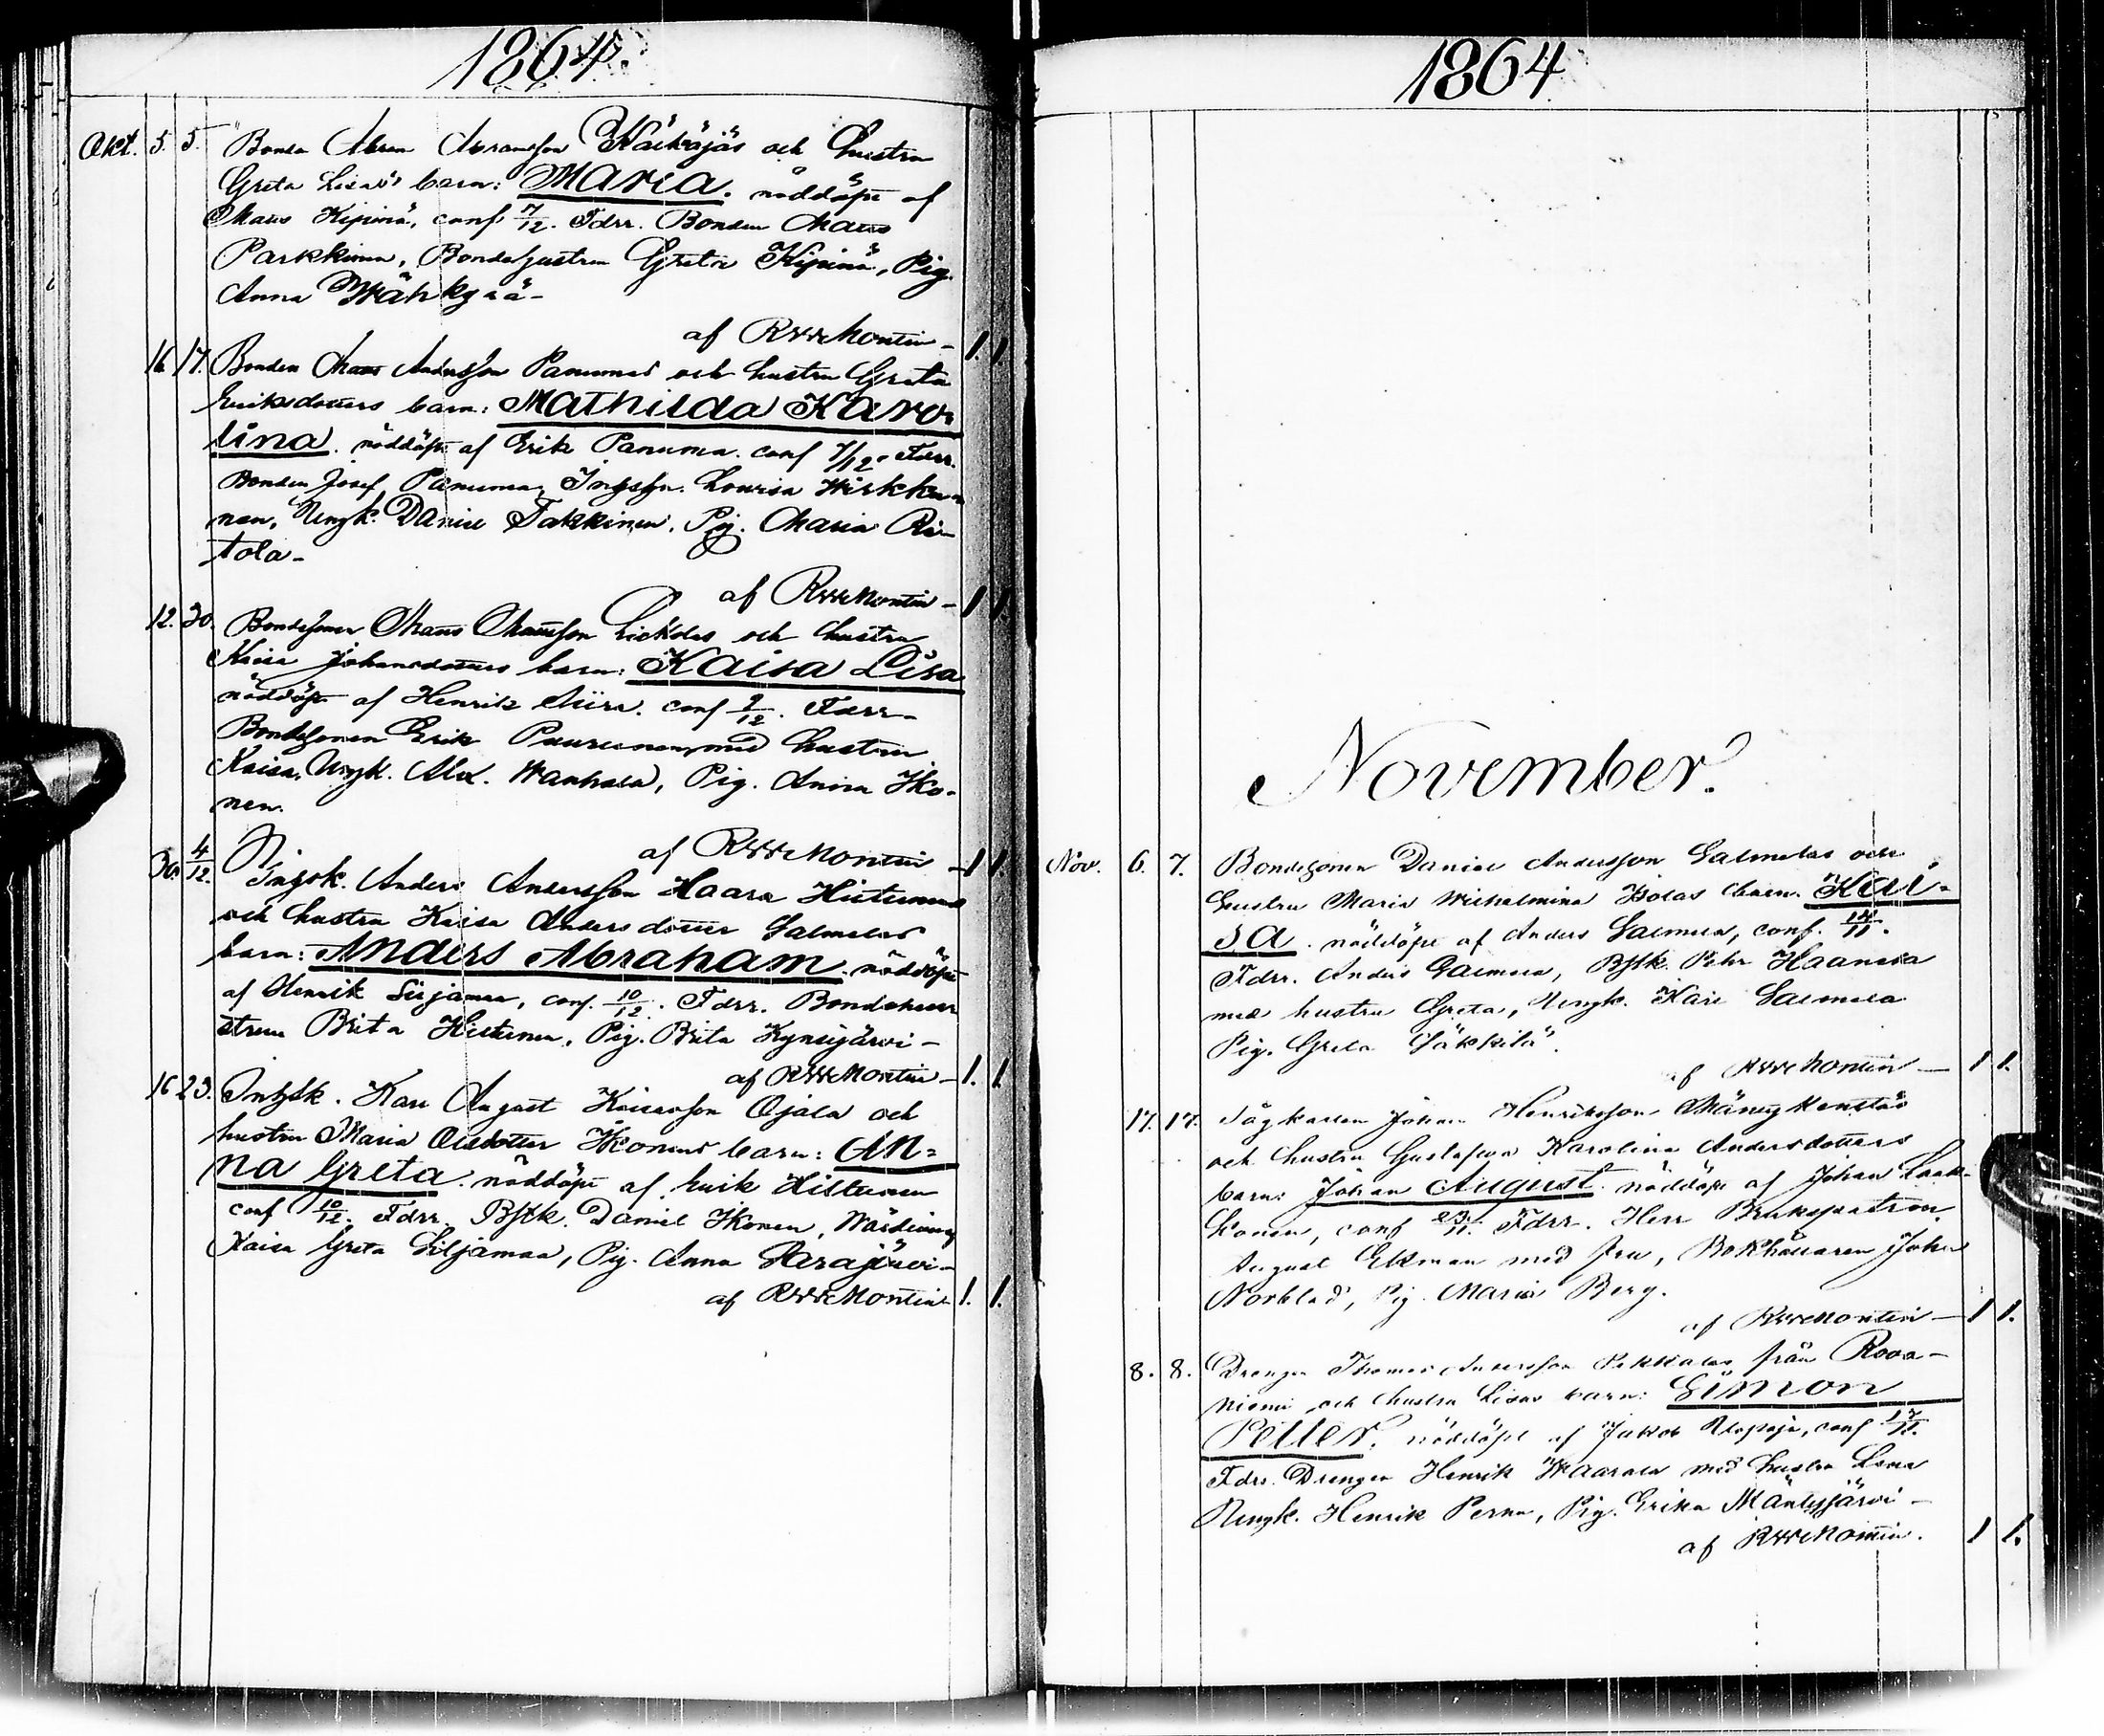 1864.
Okt. 5. 5. Bonden Abram Abramsson Käikäjäs och hustru
Greta Lisas barn: Maria. nöddöpt af
Maus Kipinä, conf 7/12. Fdrr. Bonden Maus
Parkkinen, Bondehustrun Greta Kipinä, Pig.
Anna Wähkyrä –
af RWMontin – 1. 1.
16. 17. Bonden Maus Andersson Panumas och hustru Greta
Eriksdotters barn: Mathilda Karo=
lina. nöddöpt af Erik Panuma. conf 7/12. Fdrr.
Bonden Josef Panuma, Inhyshu. Lovisa Wirkku
nen, Ungk. Daniel Takkinen, Pig. Maria Ri–
tola –
af RWMontin – 1 1.
12. 30. Bondesonen Maus Mausson Lickolas och hustru
Kaisa Johansdotters barn: Kaisa Lisa
nöddöpt af Henrik conf 9/12. Fdrr –
Bondesonen Erik Puurunen med hustru
Kaisa, Ungk. Alex. Wanhala, Pig. Anna Iko-
nen.
af RWMontin – 1 1.
30. 4/12. Inhysk. Anders Andersson Haara Hiltunens
och hustru Kaisa Andersdotter Salmelas
barn: Anders Abraham. nöddöpt
af Henrik Siljamaa, conf. 10/12. Fdrr. Bondehu
strun Brita Hiltunen, Pig. Brita Kynsijärvi –
af RWMontin – 1. 1.
16 23. Inhysk. Karl August Kaisasson Ojala och
hustru Maria Olsdotter Ikonens barn: An=
na Greta. nöddöpt af Erik Hiltunen
conf 10/12. Fdrr. Bstk. Daniel Ikonen, Wärdinnan
Kaisa Greta Siljamaa, Pig. Anna Sarajärvi –
af RWMontin 1. 1.
1864
November.
Nov. 6. 7. Bondesonen Daniel Andersson Salmelas och
hustru Maria Wilhelmina Isolas barn. Kai-
sa. nöddöpt af Anders Salmela, conf. 14/11.
Fdrr. Anders Salmela, Bstk. Pehr Haanela
med hustru Greta, Ungk. Karl Salmela
Pig. Greta Säkkilä.
af RWMontin – 1 1.
17. 17. Sågkarlen Johan Henriksson Mäntykenttäs
och hustru Gustafwa Karolina Andersdotters
barn: Johan August. nöddöpt af Johan Laak-
konen, conf 23/11. Fdrr. Herr Brukspatron
August Ekman med fru, Bokhållaren Johan
Norblad, Pig Maria Berg.
af RWMontin – 1 1.
8. 8. Drengen Thomas Andersson Pekkalas från Rova–
niemi och hustru Lisas barn: Simon
Petter. nöddöpt af Jakob conf 17/11.
Fdrr. Drengen Henrik Waarala med hustru Lena
Ungk. Henrik Perna, Pig. Erika Mäntyjärvi –
af RWMontin. 1 1.